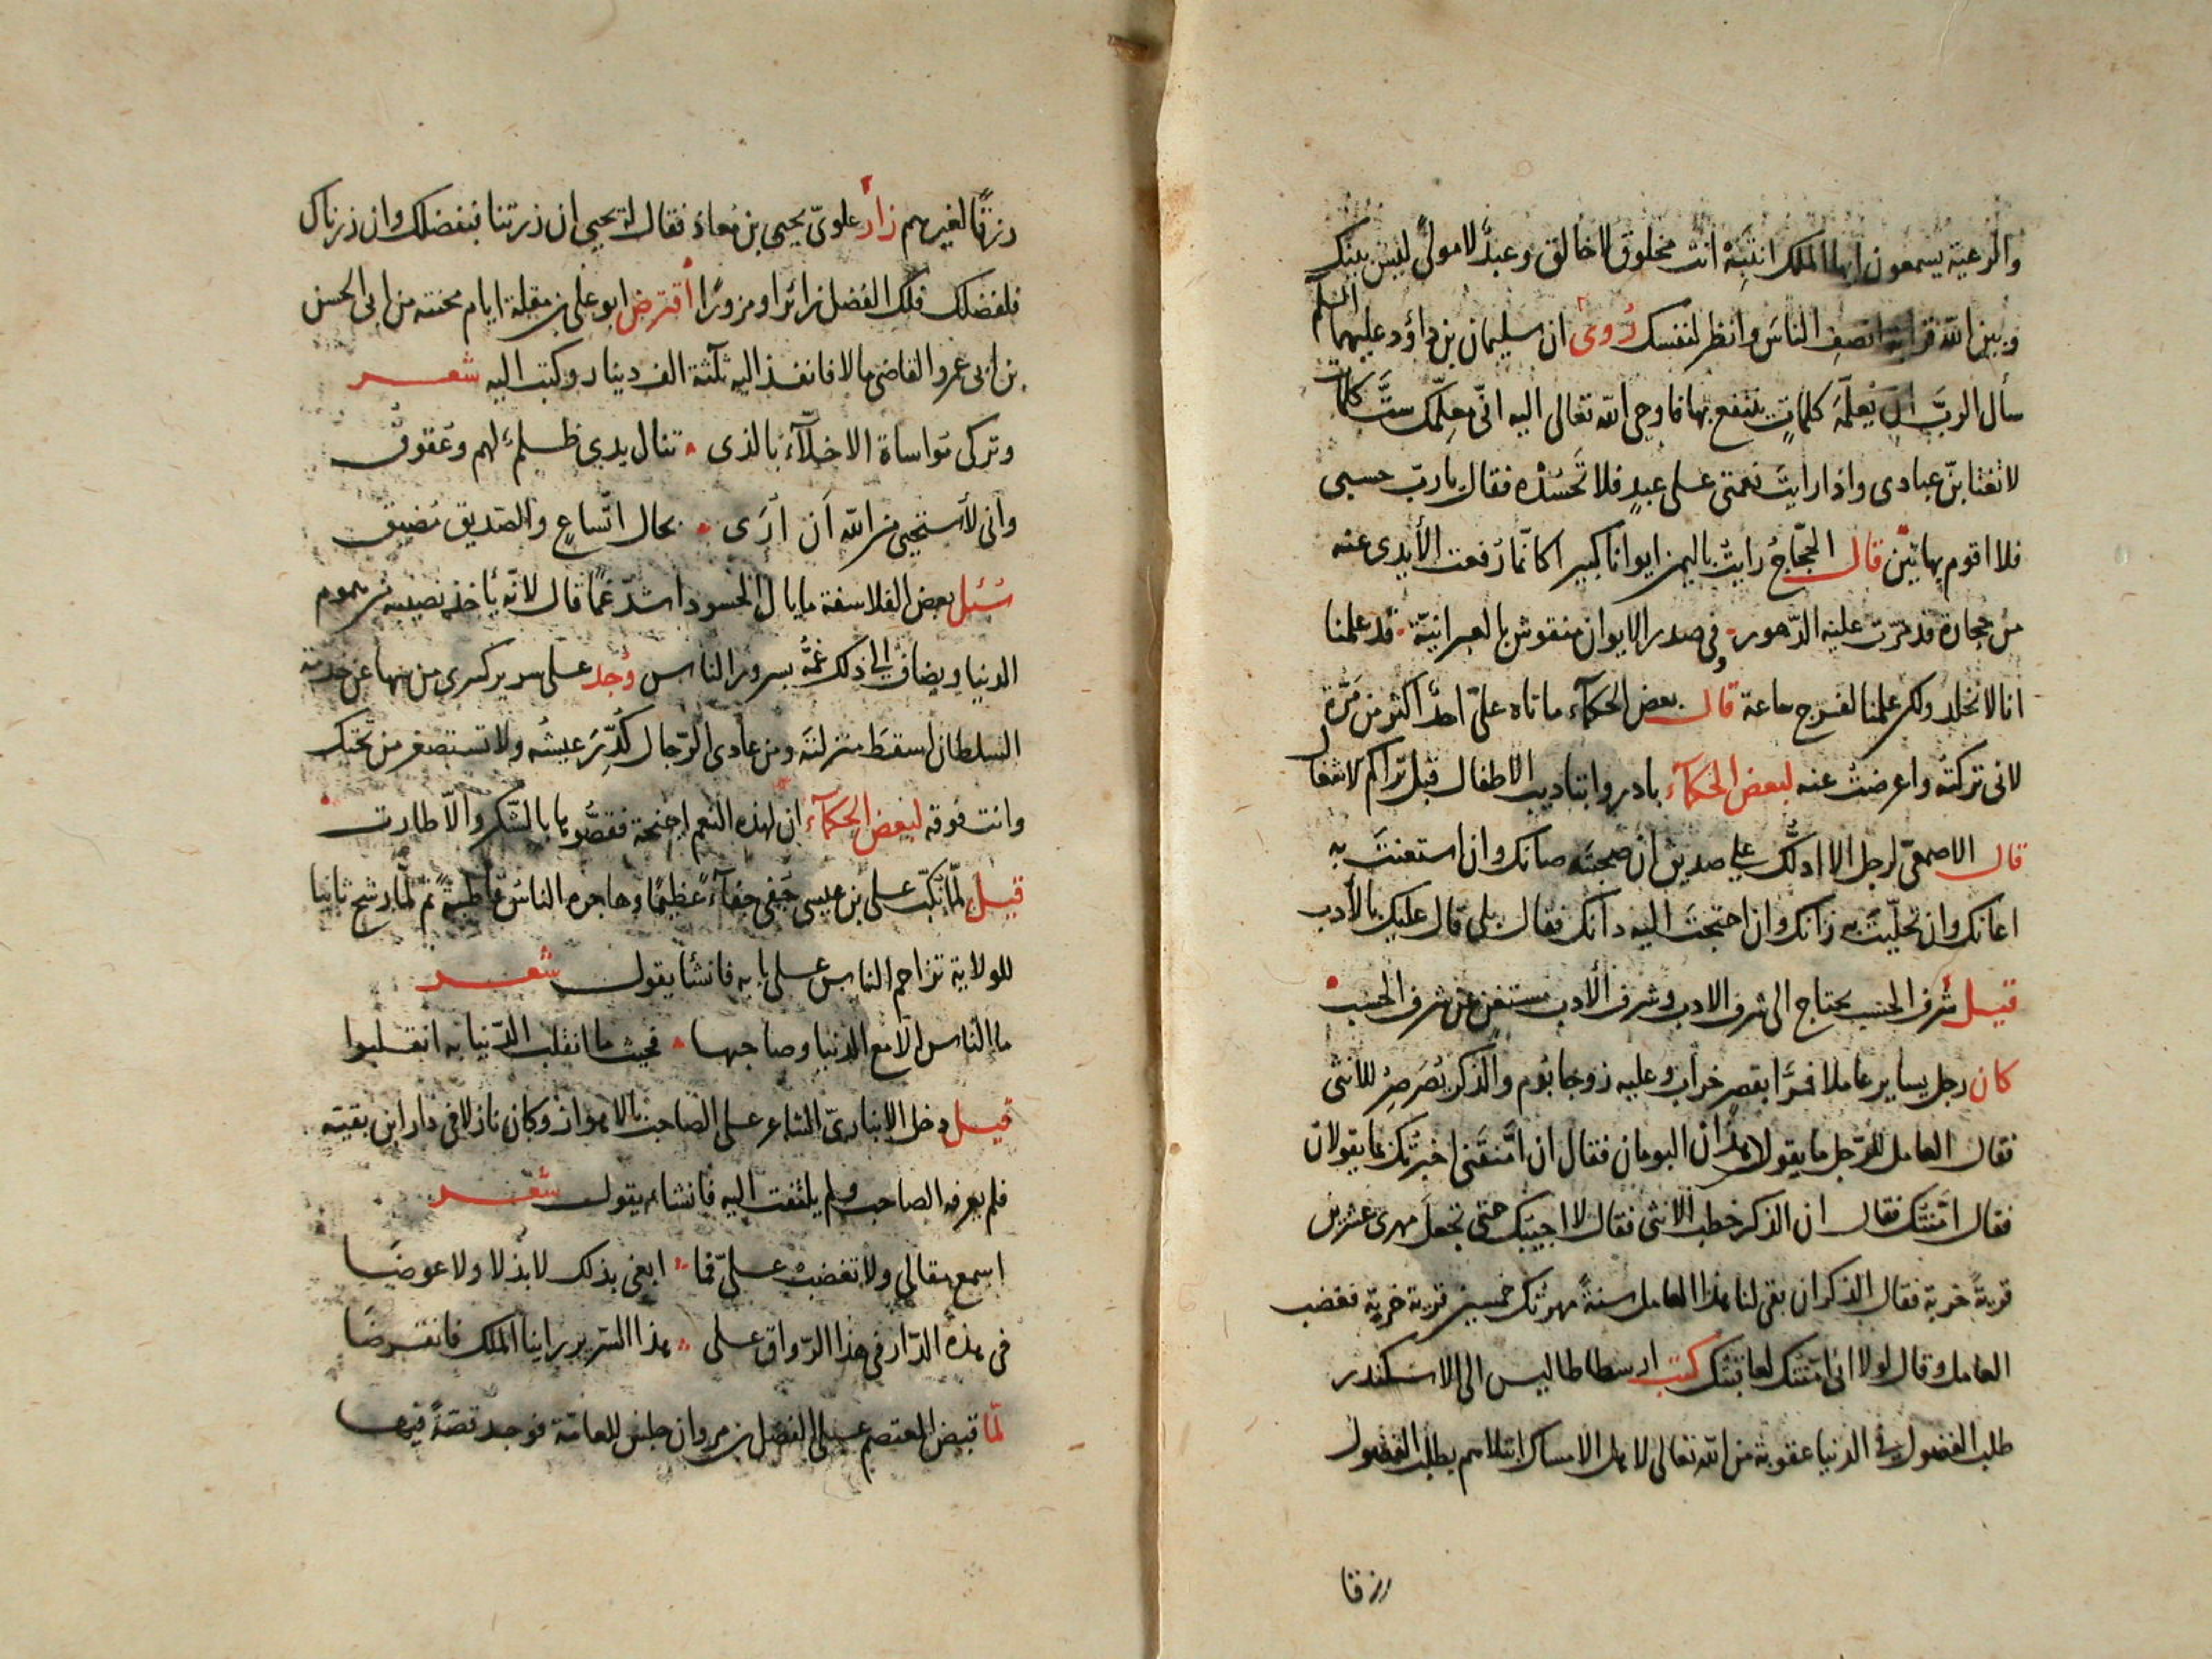 والرعية يسمعون ايها الملك انتبه انت مخلوق لا خالق وعبد لا مولى ليس بينك
وبين الله قرابة انصف الناس وانظر لنفسك روى ان سليمان بن داؤد عليهما السلم
سأل الرب ان يعلمه كلمات ينتفع بها فاوحى الله تعالى اليه انى معلمك ست كلمات
لا تغتابن عبادى واذا رايت نعمتى على عبد فلا تحسده فقال يا رب حسبى
فلا اقوم بهاتين قال الحجاج رايت باليمن ايوانا كبيرا كانما رفعت الأيدى عنه
من حجارة قد مرت عليه الدهور وفى صدر الايوان منقوش بالعبرانية قد علمنا
انا لا نخلد ولكن علمنا لفرح ساعة قال بعض الحكمآء ما تاه على احد اكثر من مرة
لانى تركته واعرضت عنه لبعض الحكمآء بادروا بتاديب الاطفال قبل تراكم الاشغال
قال الاصمعى لرجل الا ادلك على صديق ان صحبته صانك وان استعنت به
اعانك وان تحليت به زانك وان احتجت اليه دانك فقال بلى قال عليك بالأدب
قيل شرف الحسب يحتاج الى شرف الادب وشرف الأدب مستغن عن شرف الحسب
كان رجل يساير عاملا فمرا بقصر خراب وعليه زوجا بوم والذكر يصرصر للانثى
فقال العامل للرجل ما يقولا هذان البومان فقال ان امنتنى اخبرتك بما يقولان
فقال امنتك فقال ان الذكر خطب الانثى فقال لا اجيبك حتى تجعل مهرى عشرين
قرية خربة فقال الذكر ان بقى لنا هذا العامل سنة مهرتك خمسين قرية خربة فغضب
العامل وقال لولا انى امنتك لعاقبتك كتب ارسطاطاليس الى الاسكندر
طلب الفضول فى الدنيا عقوبة من الله تعالى لاهل الامساك ابتلاهم بطلب الفضول
رزقا
رزقا لغيرهم زار علوى يحيى بن معاذ فقال له يحيى ان زرتنا فبفضلك وان زرناك
فلفضلك فلك الفضل زائرا ومزورا اقترض ابو على بن مقلة ايام محنته من ابى الحسن
بن ابى عمرو القاضى مالا فانفذ اليه ثلثة الف دينار وكتب اليه شعر
وتركى مواساة الاخلآء بالذى تنال يدى ظلم لهم وعقوق
وانى لأستحيى من الله ان ارى بحال اتساع والصديق مضيق
سئل بعض الفلاسفة ما بال الحسود اشد غما قال لانه يأخذ نصيبه من هموم
الدنيا ويضاف الى ذلك غمه بسرور الناس وجد على سرير كسرى من تهاون خدمة
السلطان اسقط منزلته ومن عادى الرجال كدر عيشه ولا تستصغر من تحتك
وانت فوقه لبعض الحكمآء ان لهذه النعم اجنحة فقصوها بالشكر والا طارت
قيل لما نكب على بن عيسى جفى جفآء عظيما وهاجره الناس قاطبة ثم لما رشح ثانيا
للولاية تزاحم الناس على بابه فانشأ يقول شعر
ما الناس الا مع الدنيا وصاحبها فحيث ما انقلبت الدنيا به انقلبوا
قيل دخل الانبارى الشاعر على الصاحب بالاهواز وكان نازلا فى دار ابن بقية
فلم يعرفه الصاحب ولم يلتفت اليه فانشاء يقول شعر
اسمع مقالى ولا تغضب على فما ابغى بذلك لا بذلا ولا عوضا
فى هذه الدار فى هذا الرواق على هذا السرير راينا الملك فانقرضا
لما قبض المعتصم على الفضل بن مروان جلس للعامة فوجد قصة فيها